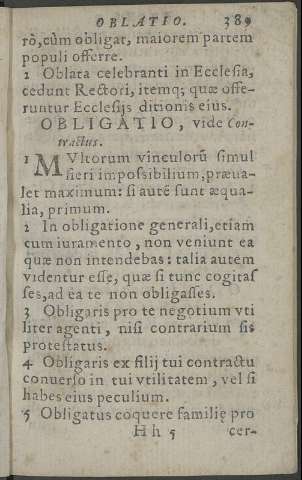 OBLATIO. 389
rò, cùm obligat, maiorem partem
populi offerre.
2 Oblata celebranti in Ecclesia,
cedunt Rectori, itemq; quæ offe-
runtur Ecclesijs ditionis eius.
OBLIGATIO, vide Con-
tractus.
1 MVltorum vinculorũ simul
fieri impossibilium, præua-
let maximum: si autẽ sunt æqua-
lia, primum.
2 In obligatione generali, etiam
cum iuramento, non veniunt ea
quæ non intendebas: talia autem
videntur esse, quæ si tunc cogitas
ses, ad ea te non obligasses.
3 Obligaris pro te negotium vti
liter agenti, nisi contrarium sis
protestatus.
4 Obligaris ex filij tui contractu
conuerso in tui vtilitatem, vel si
habes eius peculium.
5 Obligatus coquere familię pro
Hh 5 cer-